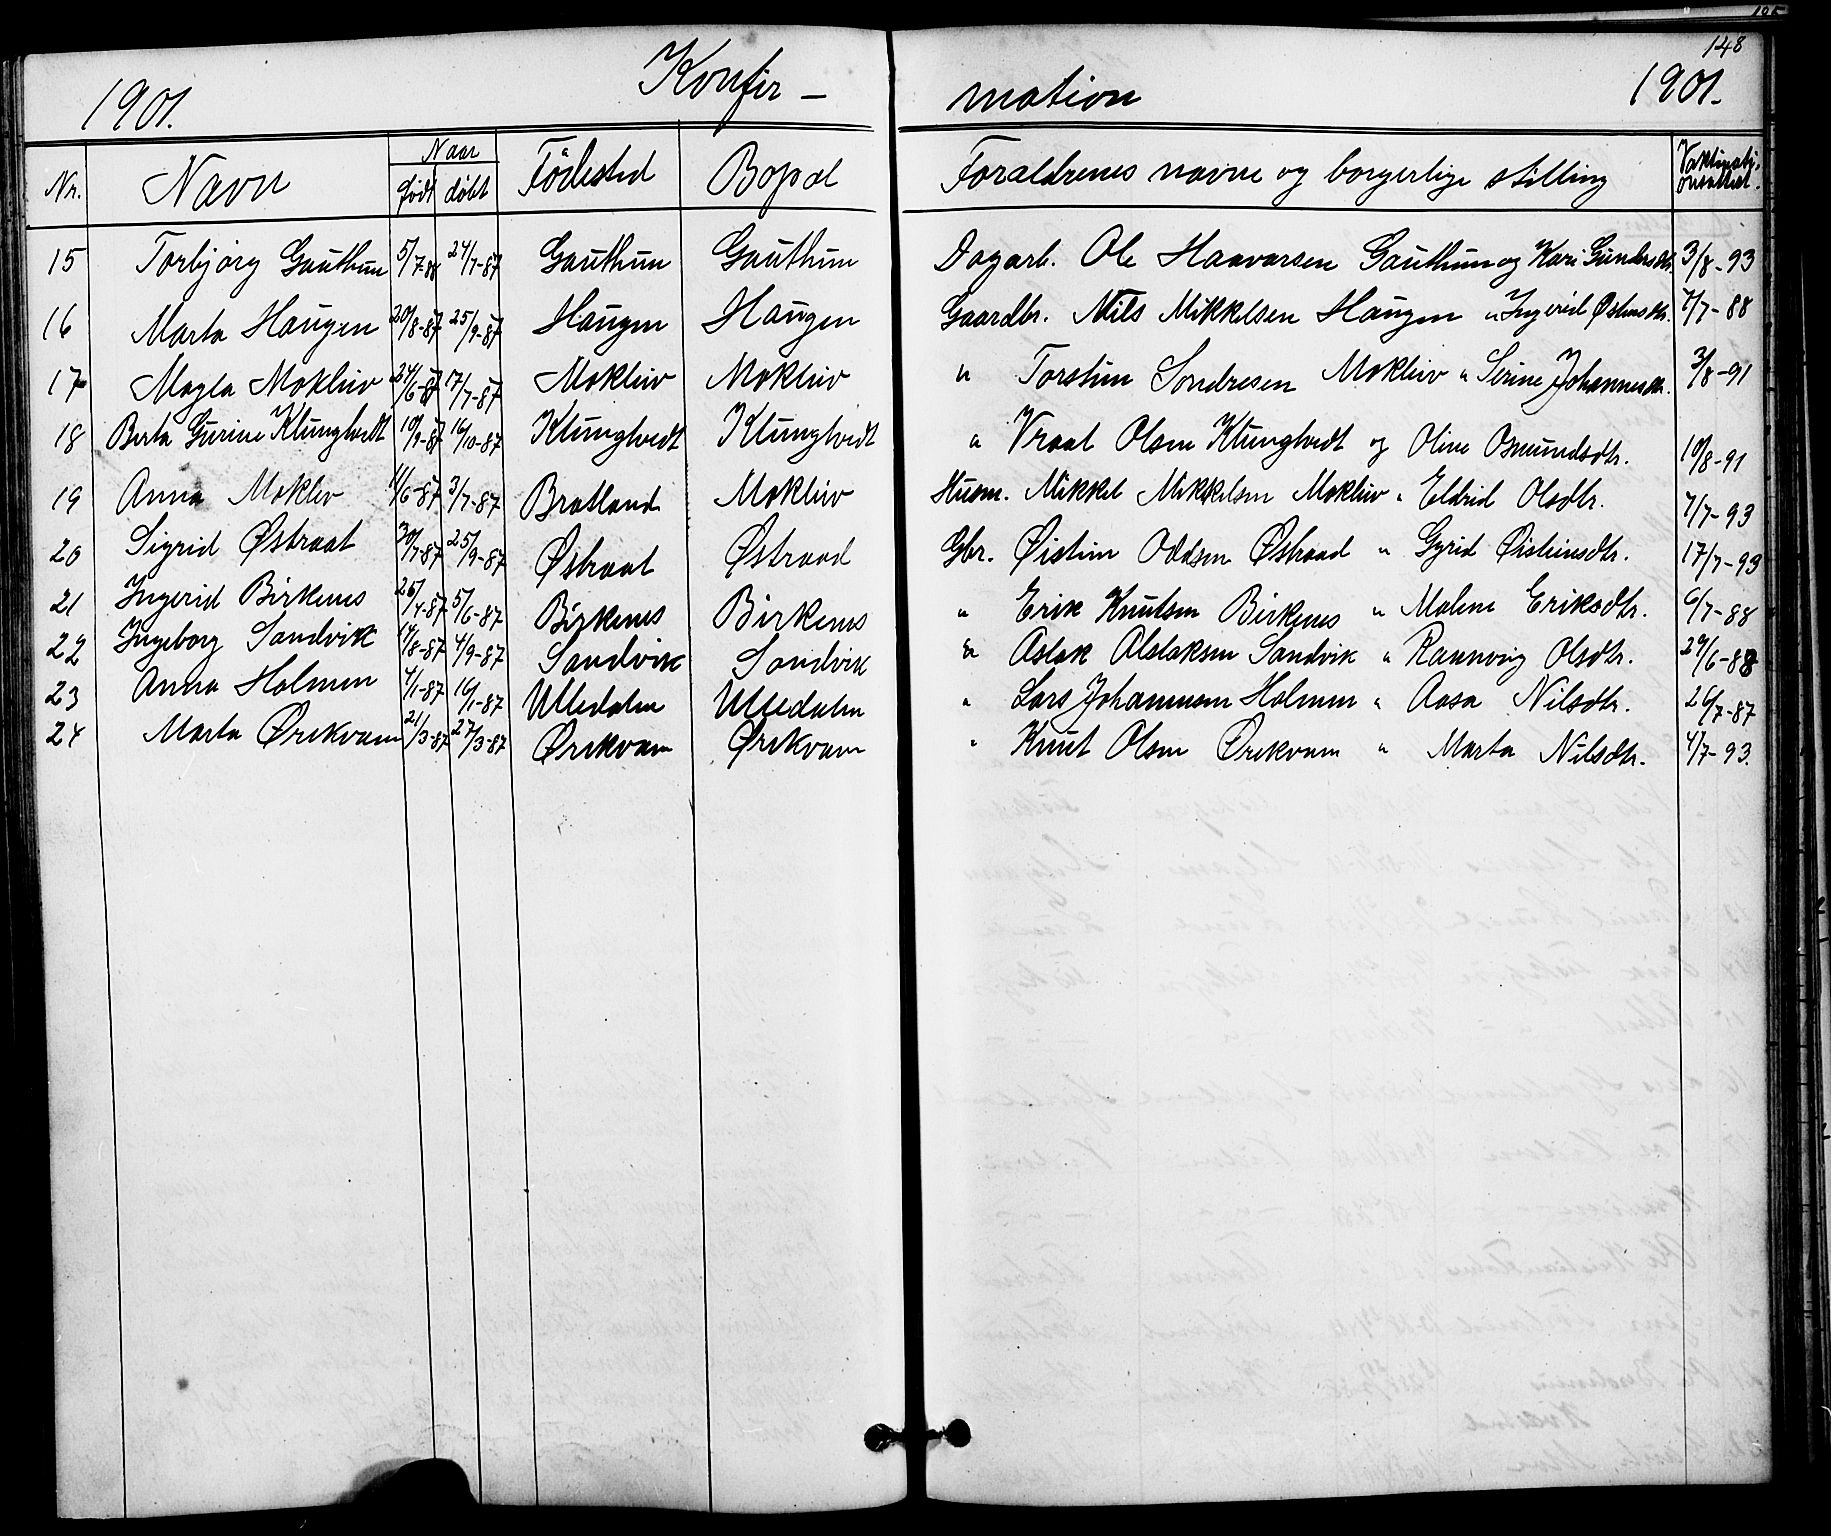 148
1901. Konfir- mation 1901.
Nr. Navn Naar født døbt Fødested Bopæl Forældrenes navne og borgerlige stilling
15 Torbjørg Gauthun 5/7-86 24/7-87 Gauthun Gauthun Dagarb. Ole Haavorsen Gauthun og Kari Gundersdtr. 3/8-93
16 Marta Haugen 20/8-87 25/9-87 Haugen Haugen Gaardbr. Nils Mikkelsen Haugen " Ingerid Østensdtr. 7/7-88
17 Magla Mokleiv 24/6-87 17/7-87 Mokleiv Mokleiv " Torstein Sondresen Mokleiv " Serine Johannesdtr. 3/8-91
18 Berta Gurine Klungtvedt 10/9-87 16/10-87 Klungtvedt Klungtvedt " Vraal Olsen Klungtvedt og Oline Osmundsdtr. 10/8-91
19 Anna Moklev 11/6-87 3/7-87 Bratland Mokleiv Husm. Mikkel Mikkelsen Mokleiv " Eldrid Olsdtr. 7/7-93
20 Sigrid Østraat 30/7-87 25/9-87 Østraat Østraad Gbr. Øistein Oddsen Østraad " Gyrid Øisteinsdtr. 17/7-93
21 Ingerid Birkenes 26/4-87 5/6-87 Birkenes Birkenes " Erik Knutsen Birkenes " Malene Eriksdtr. 6/7-88
22 Ingeborg Sandvik 14/8-87 4/9-87 Sandvik Sandvik " Aslak Aslaksen Sandvik " Rannveig Olsdtr. 29/6-88
23 Anna Holmen 4/1-87 16/1-87 Ulledalen Ulledalen " Lars Johannesen Holmen " Aasa Nilsdtr. 26/7-87
24 Marta Ørekvam 21/3-87 27/3-87 Ørekvam Ørekvam " Knut Olsen Ørekvam " Marta Nilsdtr. 4/7-93.